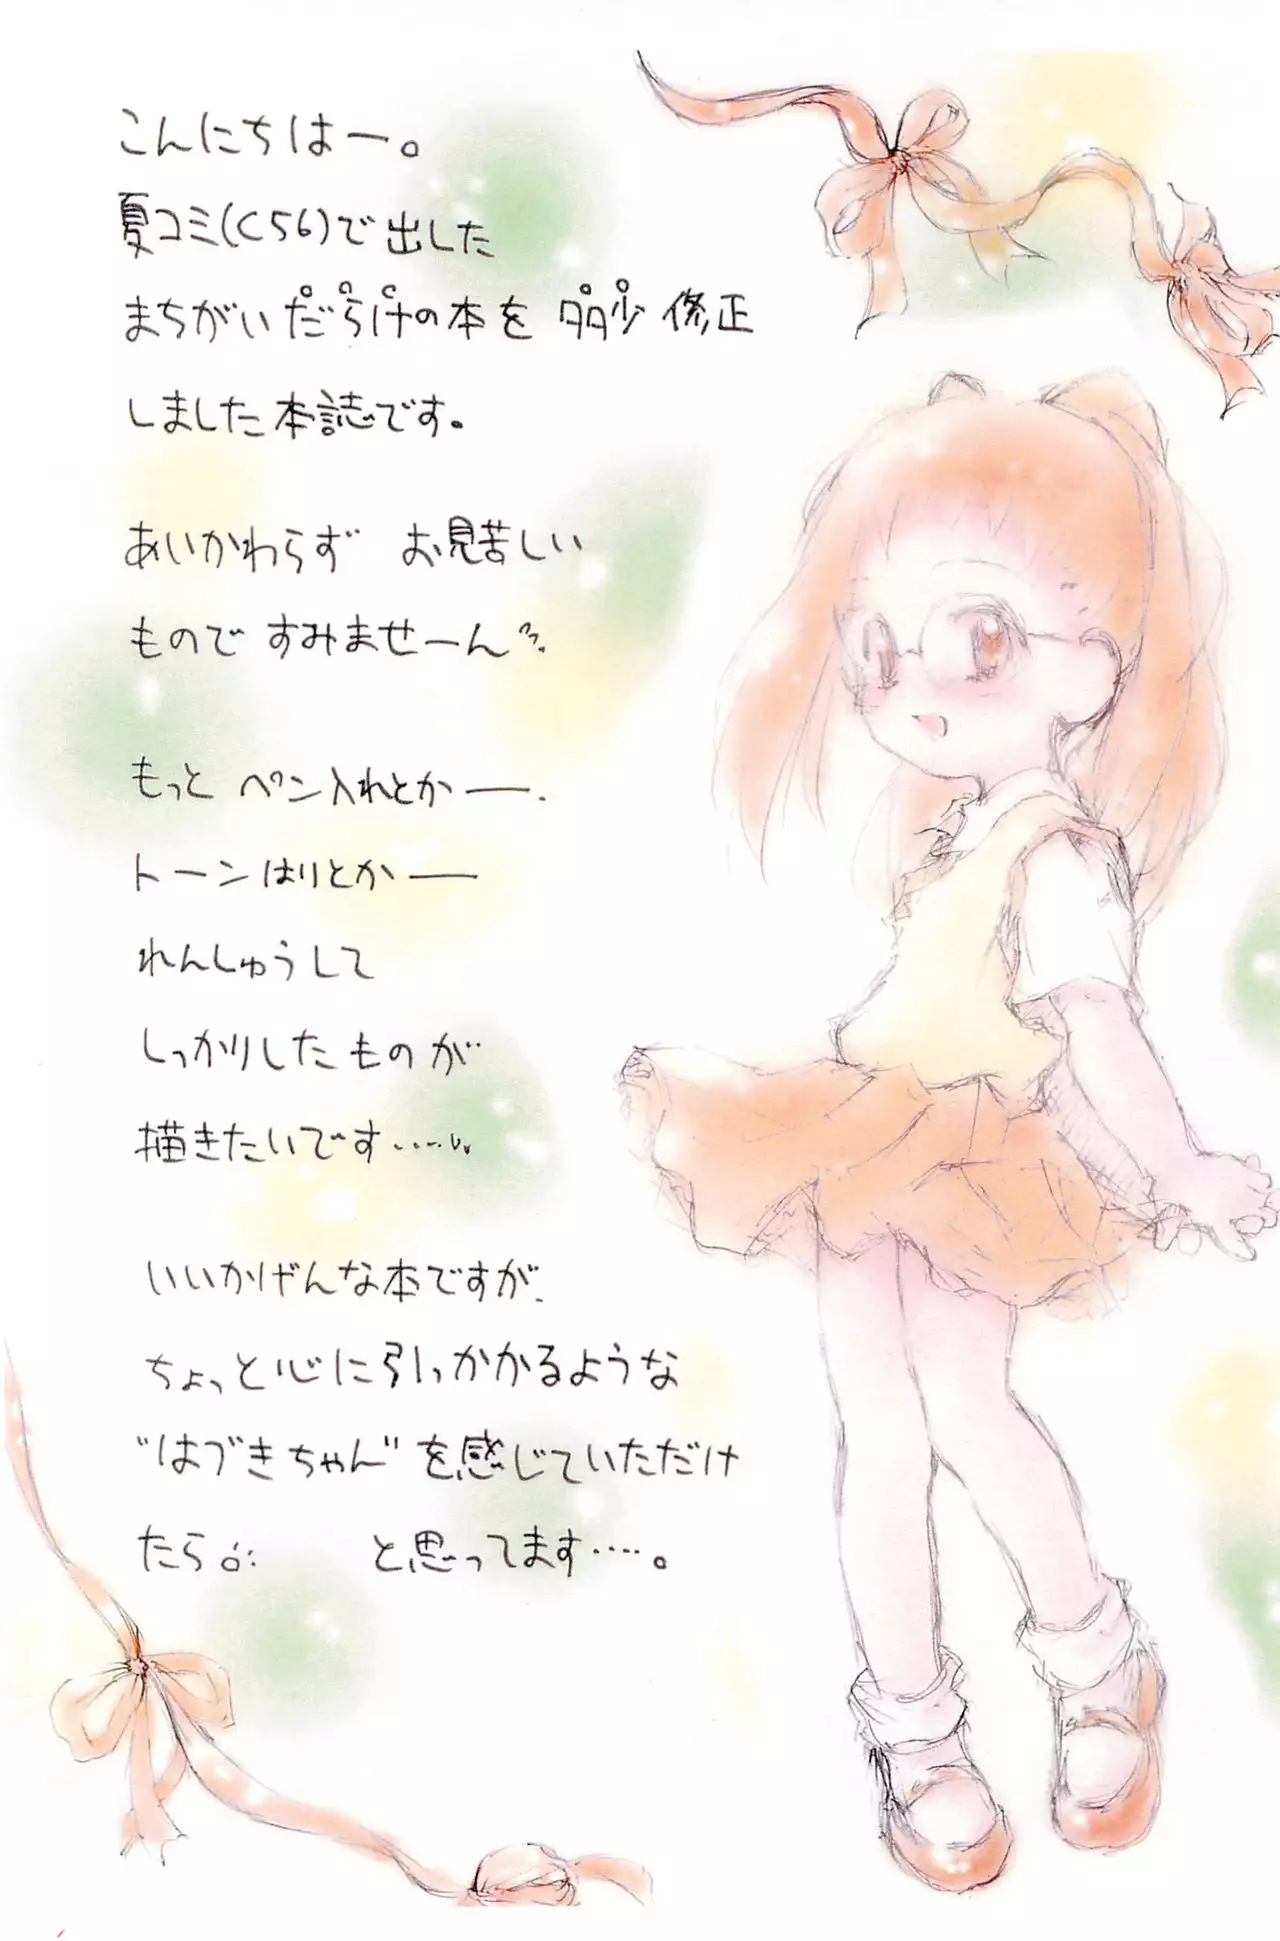 こんにちはー。
夏コミ(C56)で出した
まちがいだらけの本を 多少 修正
しました本誌です。
あいかわらず お見苦しい
ものです すみませーん
もっと ペン入れとかー.
トーンはりとかー
れんしゅうして
しっかりしたものが
描きたいです……
いいかげんな本ですが、
ちょっと心に引っかかるような
"はづきちゃん"を感じていただけ
たら… と思ってます……。